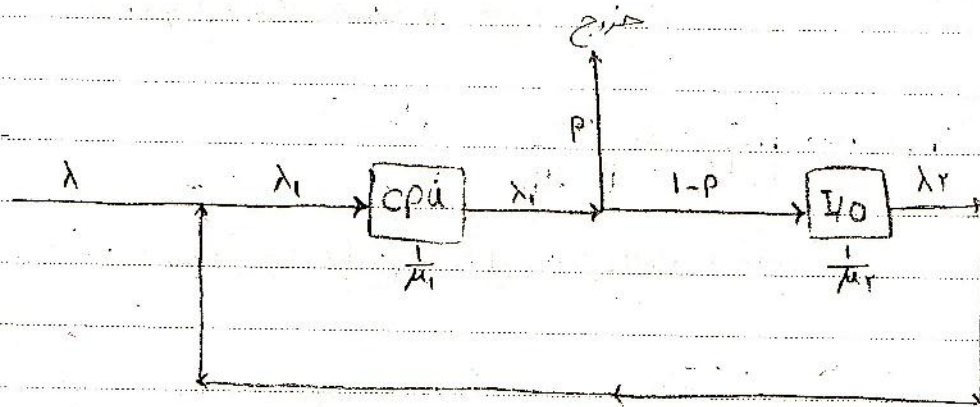 خروج
P
λ
λ₁
CPU
λ₁
1-P
I/O
λ۲
1/μ₁
1/μ۲